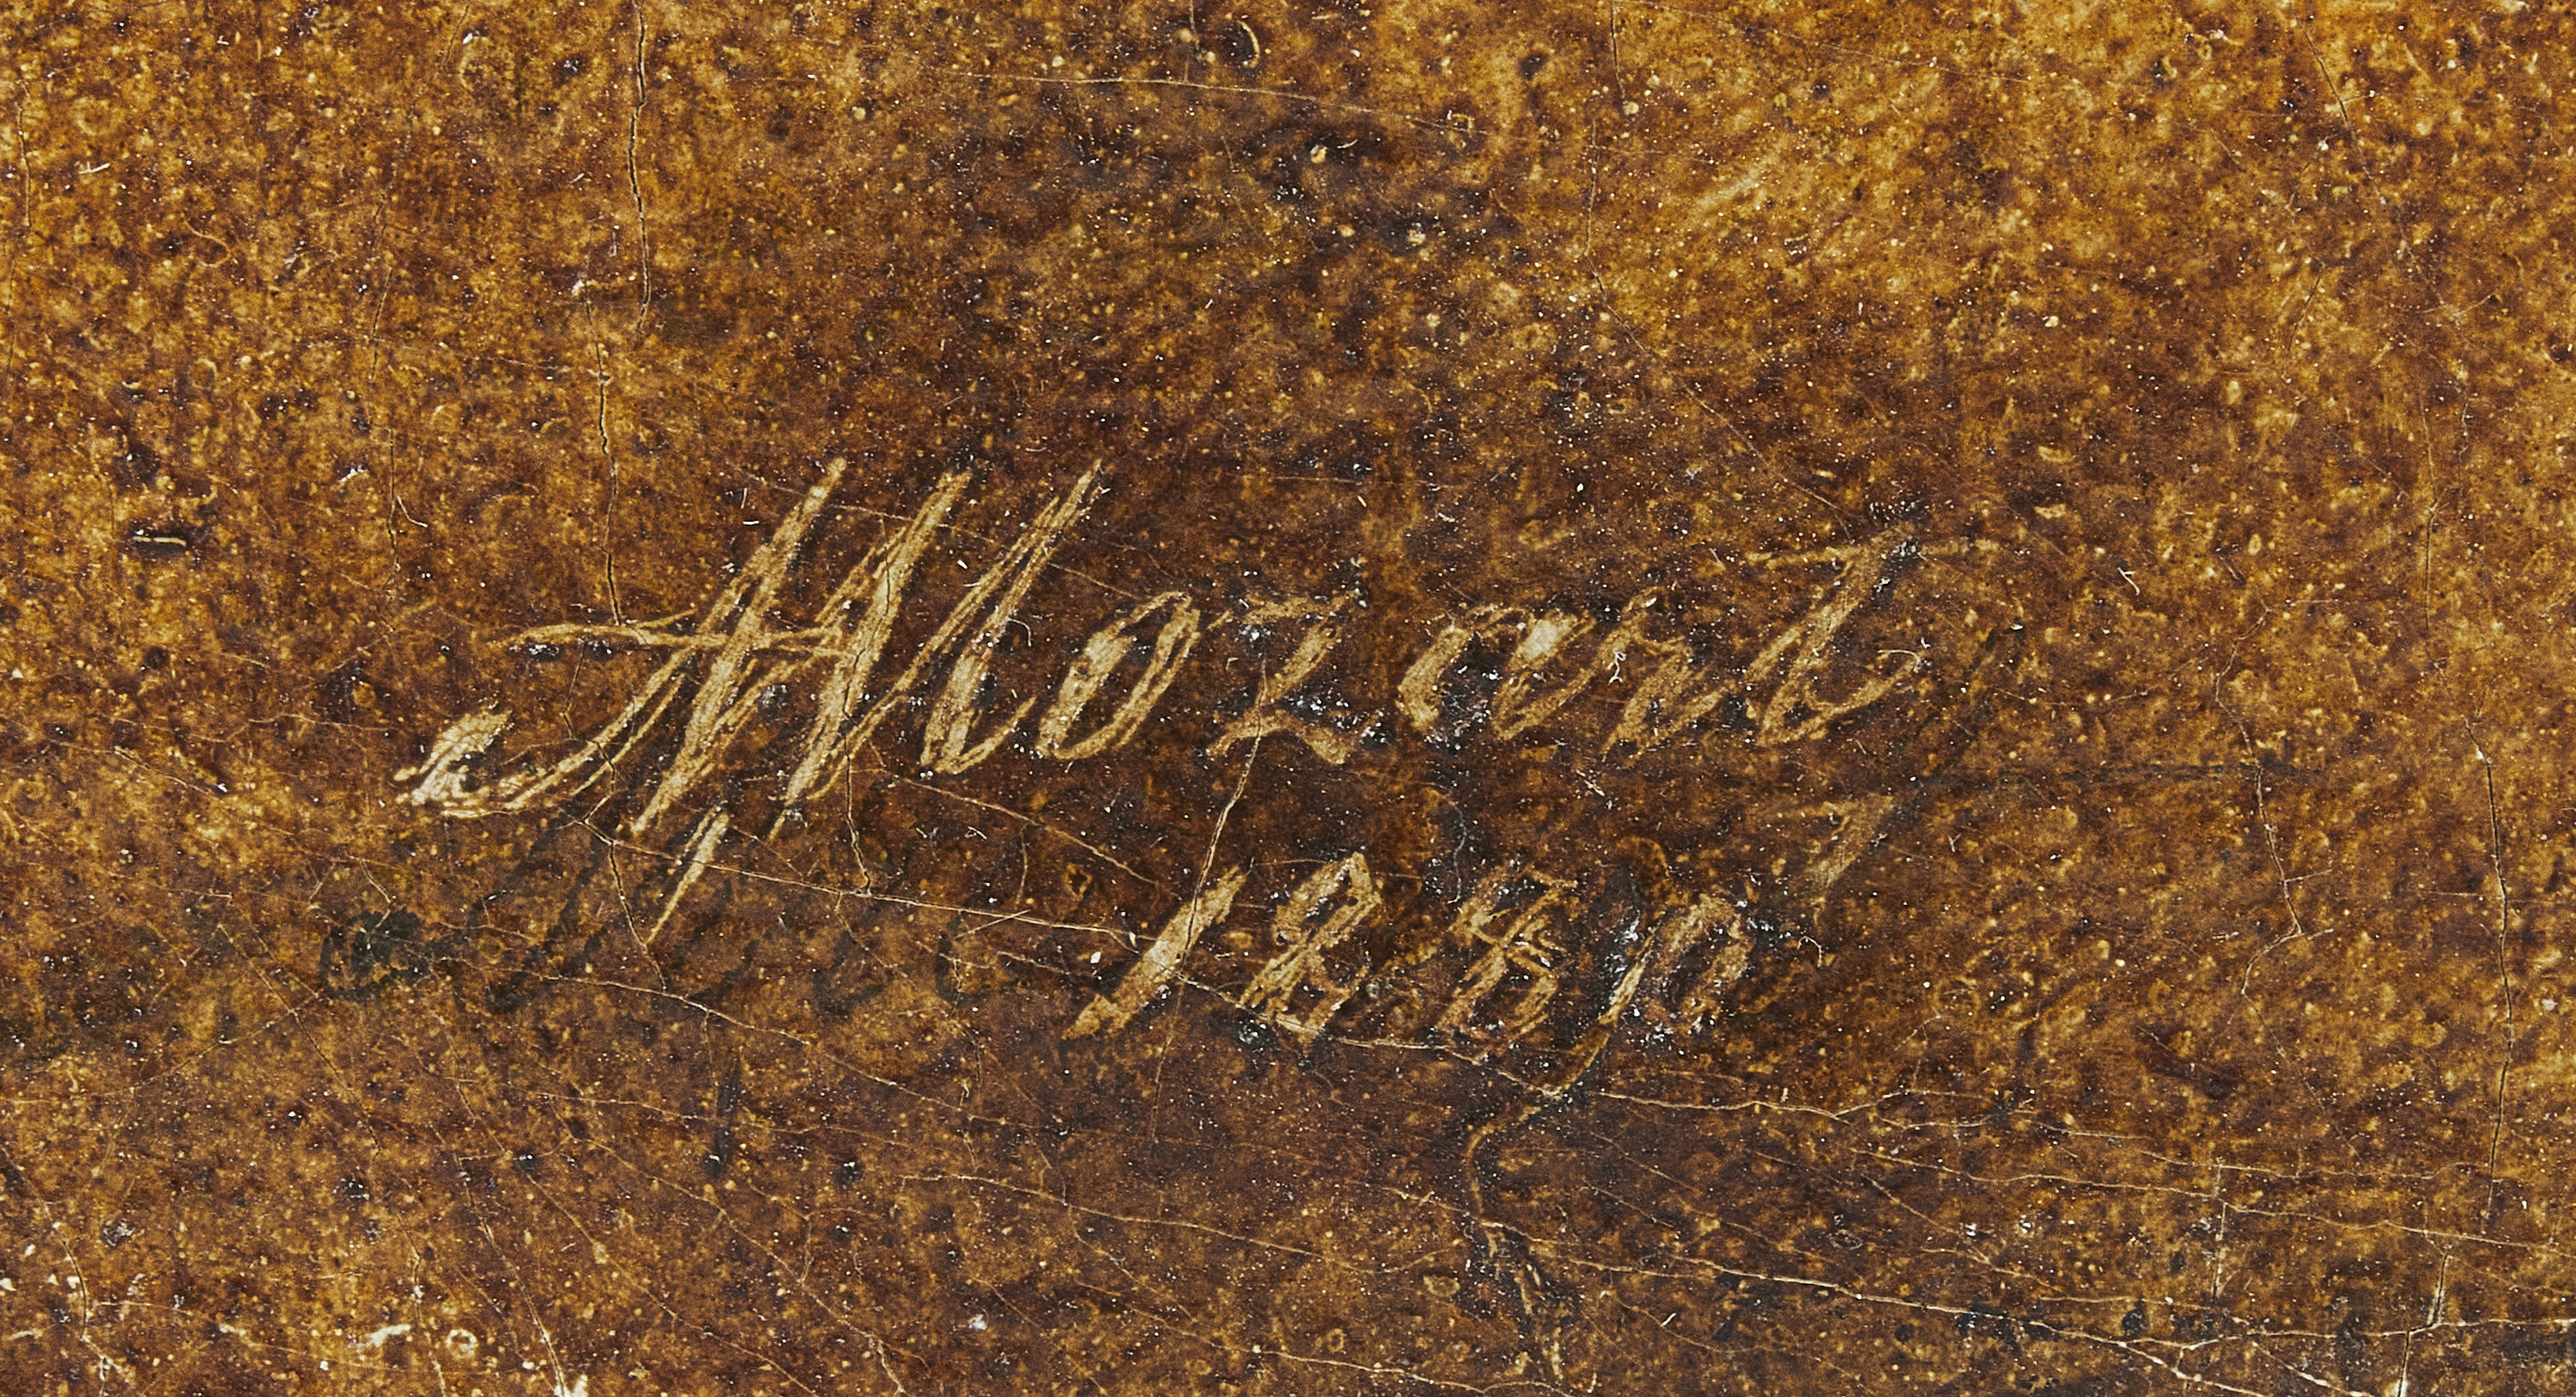 AMozart
1880